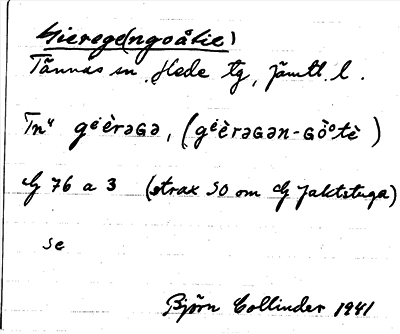 Hierege(ngoåtie)
Tännäs sn. Hede tg, Jämtl. l.
Tnⁿ gⁱèrəɢə, (gⁱèrəɢən-ɢòᵒtè)
G 76 a 3 (strax SO om G Jaktstuga)
se
Björn Collinder 1941